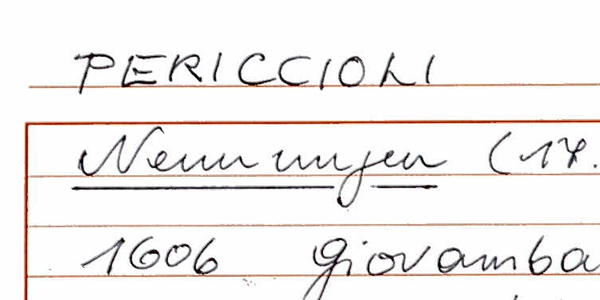 PERICCIOLI
Nennungen (17.
1606 Giovamba